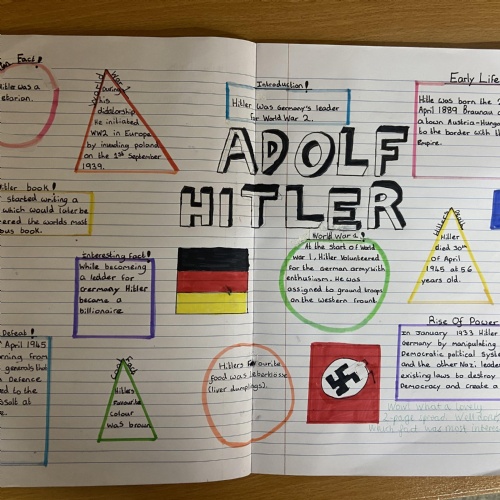 Fun Fact!
Hitler was a
etarian.
World War 2
During
his
dictatorship
He initiated
WW2 in Europe
by invading poland
on the 1st September
1939.
Introduction!
Hitler was Germany's leader
for World War 2.
Early Life
Hitle was born the
April 1889 Braunau
a town Austria-Hunga
to the border with th
Empire.
ADOLF
HITLER
itler book!
started writing a
which would later be
ered the worlds most
ous book.
Interesting Fact!
While becoming
a leader for
Crermany Hitler
became a
billionaire
World War 1!
At the start of World
war 1, Hitler Volunteered
for the german army with
enthusiasm. He was
assigned to ground troops
on the western frount.
Hitlers death
Hitler
died 30th
of April
1945 at 56
years old.
Rise Of Power
In January 1933 Hitler
Germany by manipulating
Democratic political syste
and the other Nazi leade
existing laws to destroy
Democracy and create a
Defeat!
April 1945
rning from
generals that
Defence
ed to the
ssult at
e.
Fun Fact
Hitlers
Favourite
colour
was brown
Hitlers Favourite
food was leberklosse
(liver dumplings).
Wow! What a lovely
2-page spread. Well done
Which fact was most interes